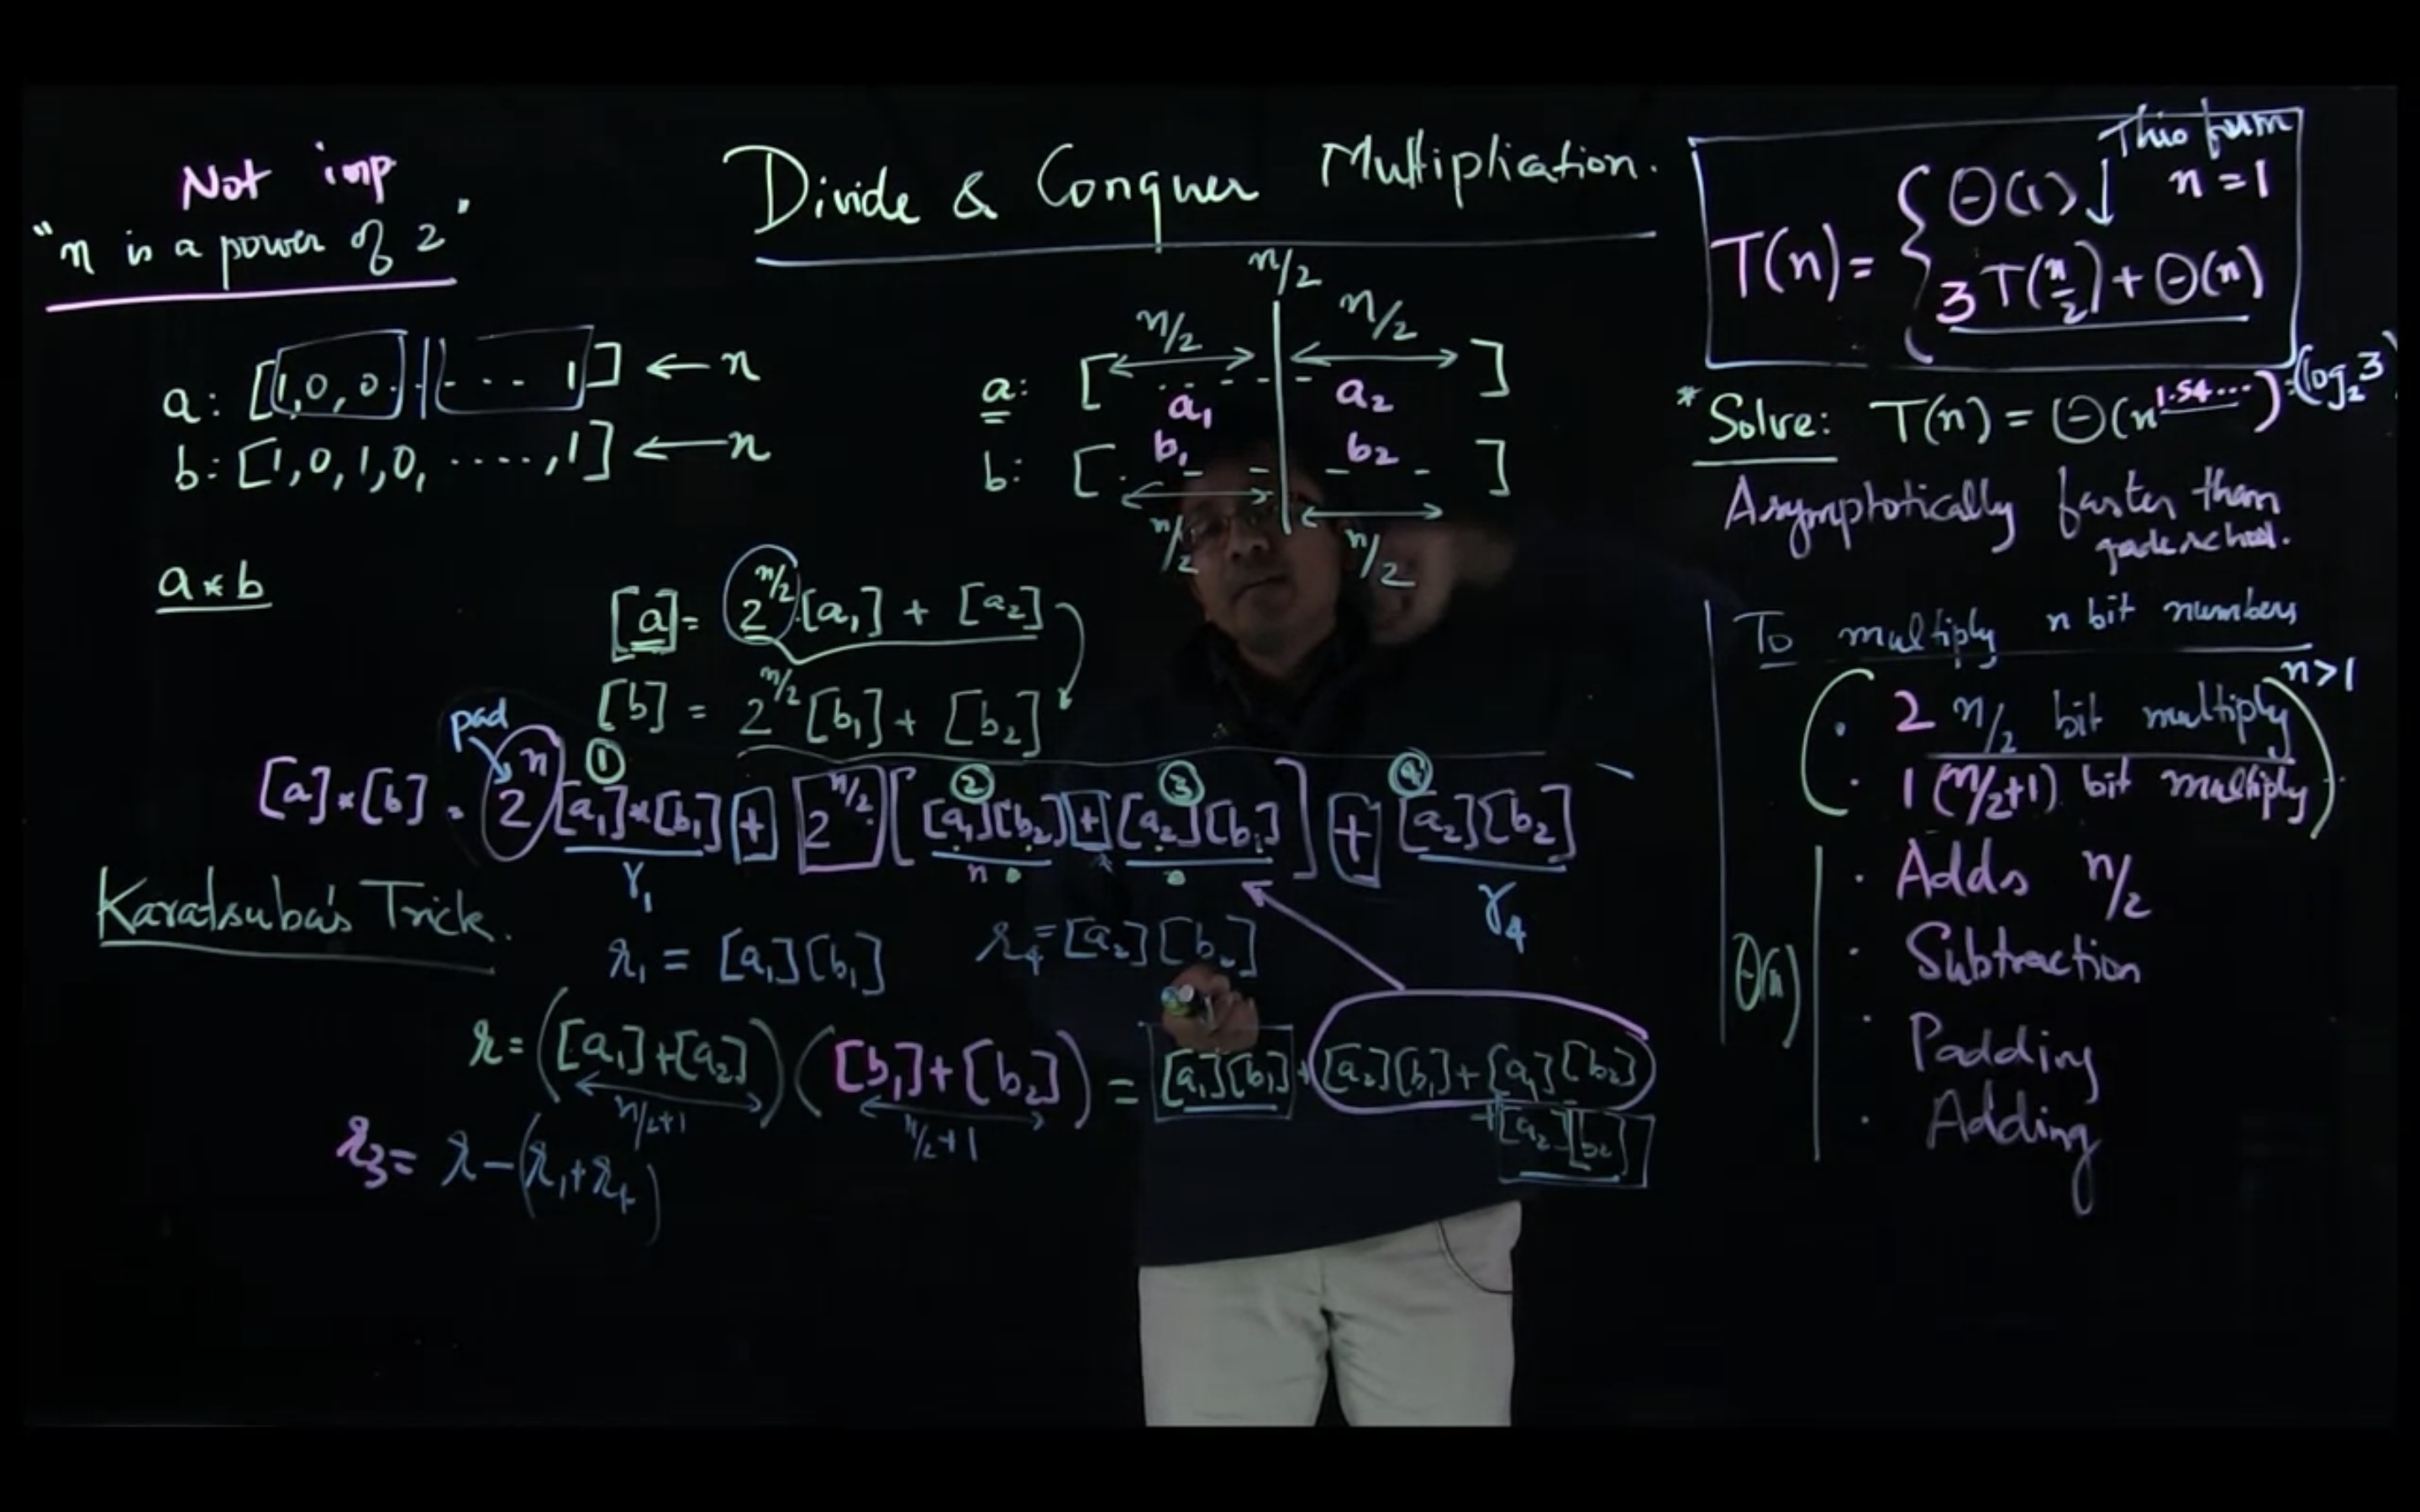 Not imp
"n is a power of 2"
Divide & Conquer Multiplication.
a: [1,0,0..|-... 1] ← n
b: [1,0,1,0, ....., 1] ← n
a * b
n/2
n/2 n/2
a: [ ..---- ]
a₁ a₂
b₁ b₂
b: [ . - - - - ]
n/2 n/2
[a] = 2^(n/2) . [a₁] + [a₂]
[b] = 2^(n/2) [b₁] + [b₂]
pad
① ② ③ ④
[a]*[b] = 2^n [a₁]*[b₁] + 2^(n/2) [ [a₁][b₂] + [a₂][b₁] ] + [a₂][b₂]
r₁ n r₄
Karatsuba's Trick.
r₁ = [a₁][b₁] r₄ = [a₂][b₂]
r = ([a₁]+[a₂]) ([b₁]+[b₂]) = [a₁][b₁] + [a₂][b₁] + [a₁][b₂]
n/2+1 n/2+1 + [a₂][b₂]
r₃ = r - (r₁+r₄)
This form
T(n) = { Θ(1) n=1
3 T(n/2) + Θ(n)
* Solve: T(n) = Θ(n^1.54...) = (log₂3)
Asymptotically faster than
gradeschool.
To multiply n bit numbers
n>1
. 2 n/2 bit multiply
. 1 (n/2+1) bit multiply
. Adds n/2
. Subtraction
Θ(n)
. Padding
. Adding